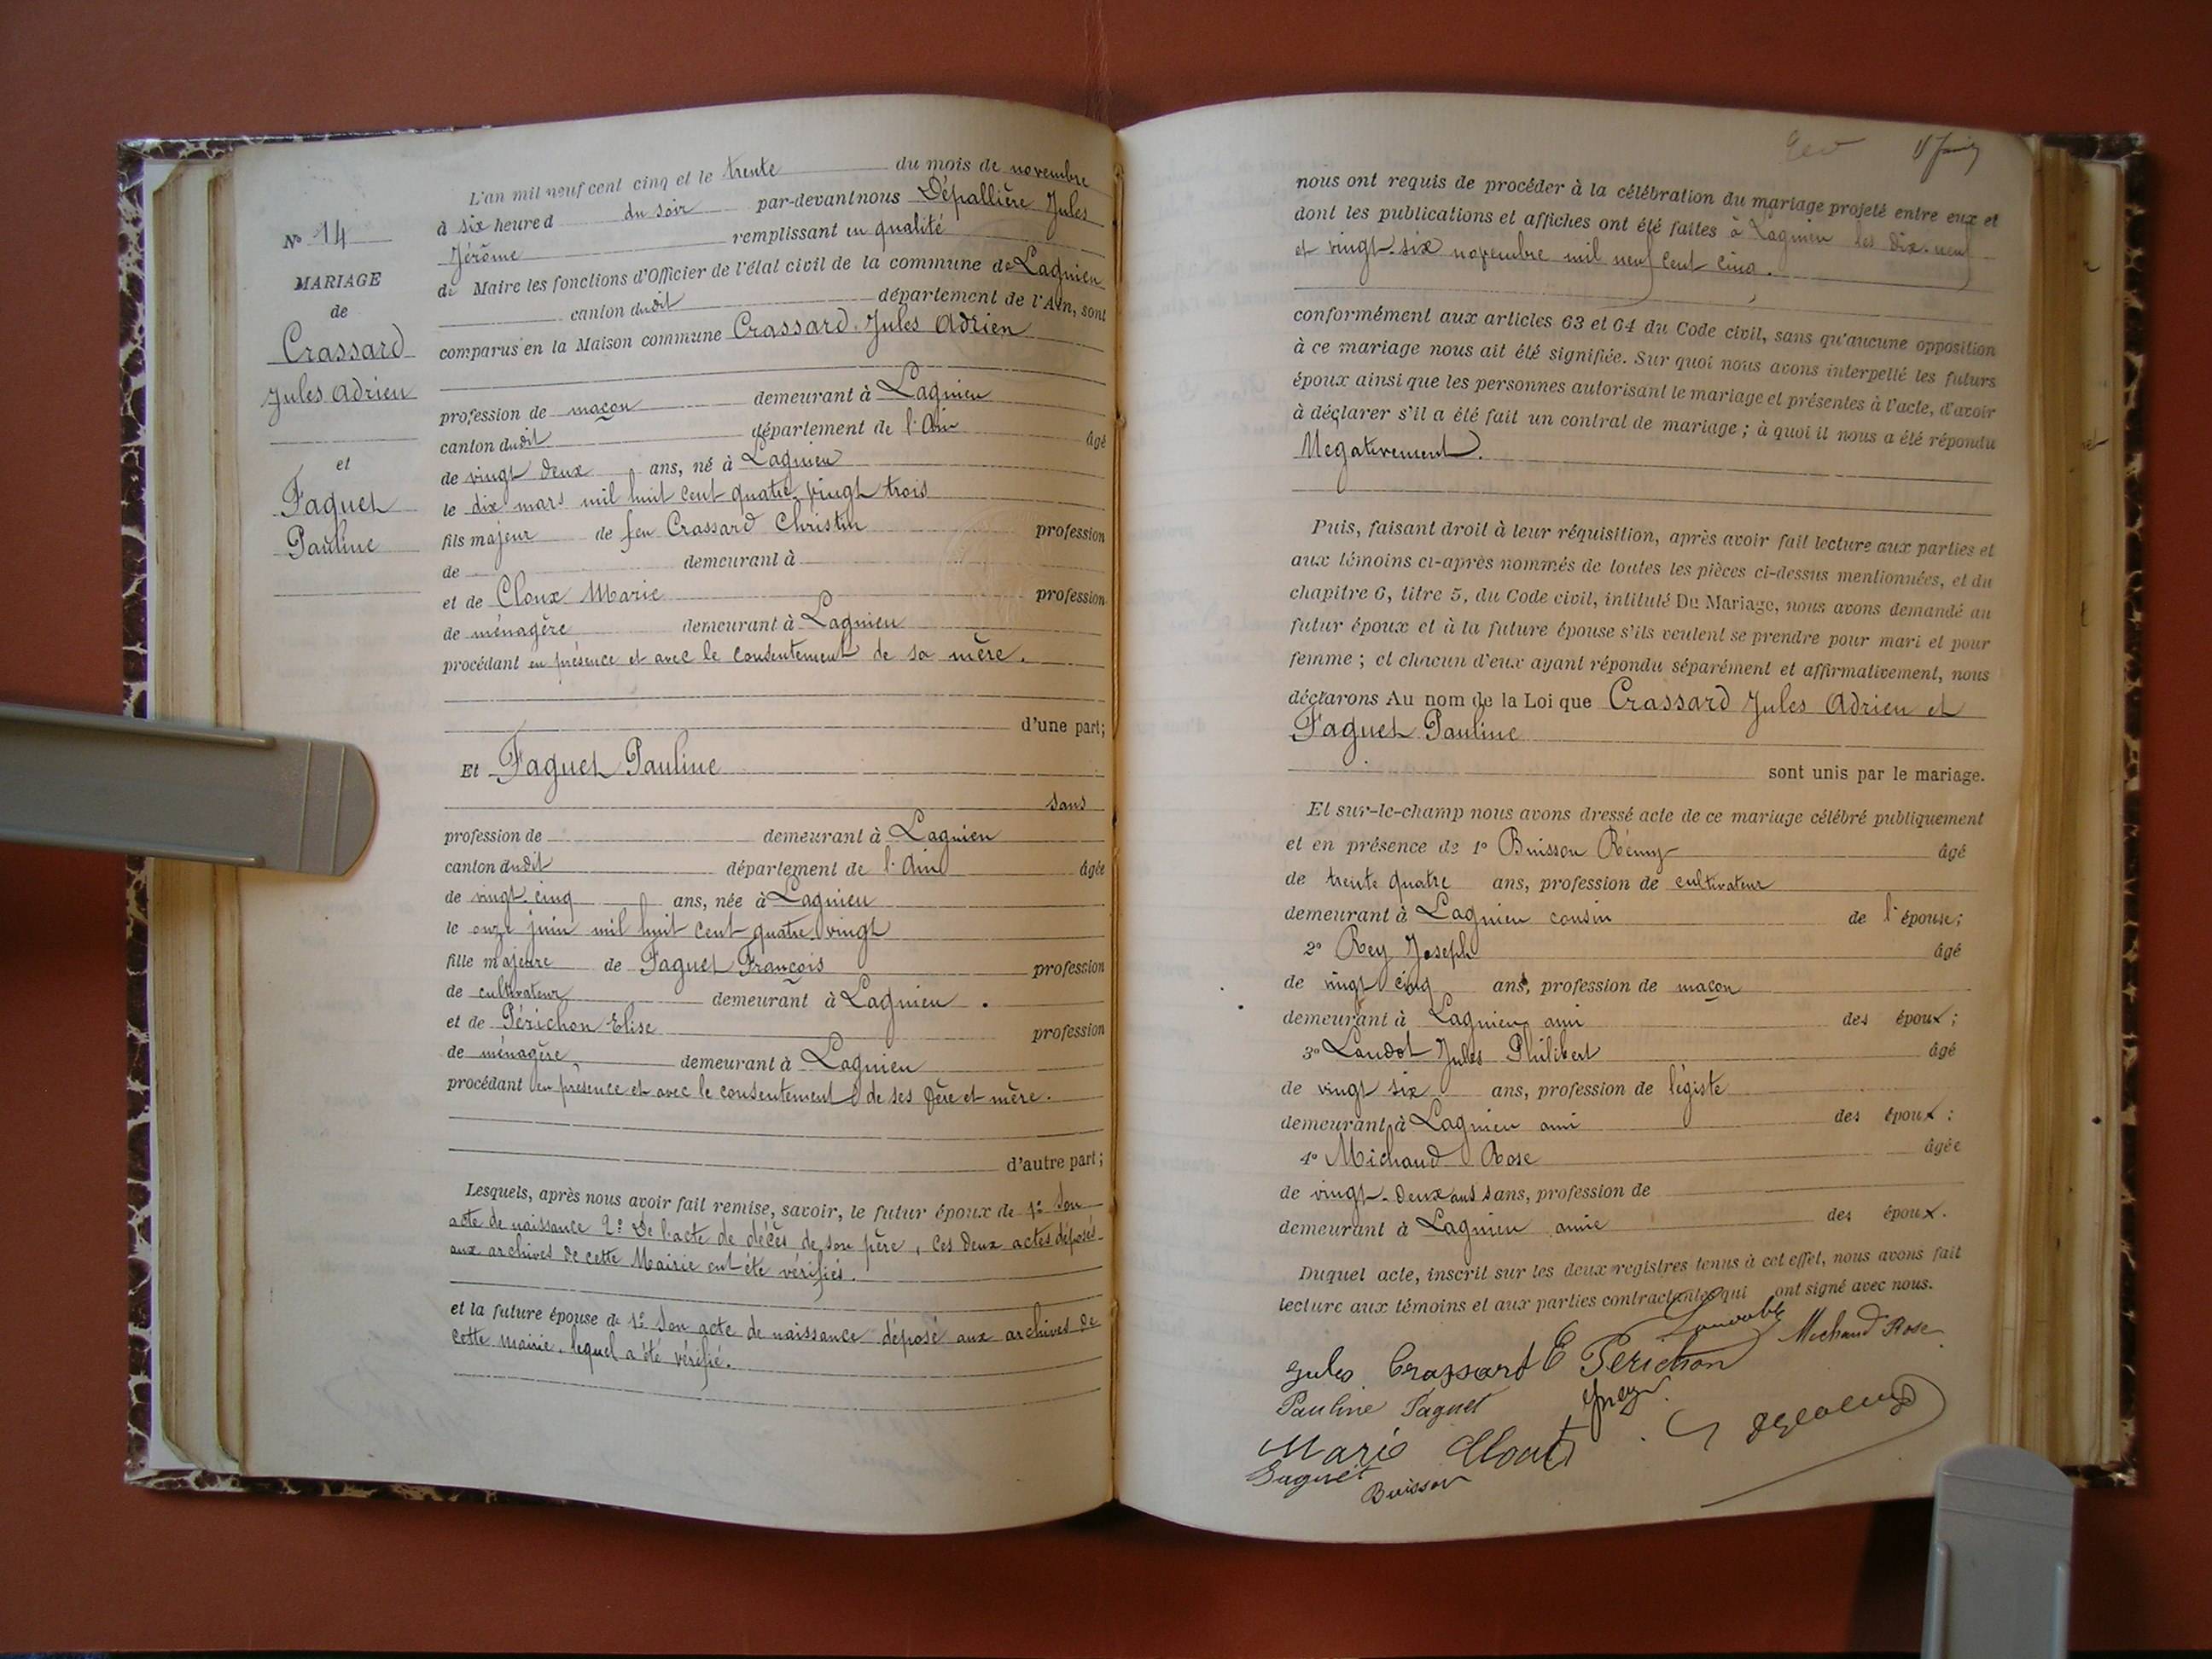 N° 14
MARIAGE
de
Crassard
Jules Adrien
et
Faguet
Pauline
L'an mil neuf cent cinq et le trente du mois de novembre
à six heures du soir par-devant nous Dépallière Jules
Jérôme remplissant en qualité
de Maire les fonctions d'Officier de l'état civil de la commune de Lagnieu
canton dudit département de l'Ain, sont
comparus en la Maison commune Crassard Jules Adrien
profession de maçon demeurant à Lagnieu
canton dudit département de l'Ain âgé
de vingt deux ans, né à Lagnieu
le dix mars mil huit cent quatre vingt trois
fils majeur de feu Crassard Christin profession
de demeurant à
et de Cloux Marie profession
de ménagère demeurant à Lagnieu
procédant en présence et avec le consentement de sa mère.
d'une part;
Et Faguet Pauline
sans
profession de demeurant à Lagnieu
canton dudit département de l'Ain âgée
de vingt cinq ans, née à Lagnieu
le onze juin mil huit cent quatre vingt
fille majeure de Faguet François profession
de cultivateur demeurant à Lagnieu.
et de Périchon Elise profession
de ménagère demeurant à Lagnieu
procédant en présence et avec le consentement de ses père et mère.
d'autre part;
Lesquels, après nous avoir fait remise, savoir, le futur époux de 1° Son
acte de naissance 2° De l'acte de décès de son père, Ces deux actes déposés
aux archives de cette Mairie ont été vérifiés.
et la future épouse de 1° Son acte de naissance déposé aux archives de
cette mairie, lequel a été vérifié.
nous ont requis de procéder à la célébration du mariage projeté entre eux et
dont les publications et affiches ont été faites à Lagnieu les dix-neuf
et vingt-six novembre mil neuf cent cinq.
conformément aux articles 63 et 64 du Code civil, sans qu'aucune opposition
à ce mariage nous ait été signifiée. Sur quoi nous avons interpellé les futurs
époux ainsi que les personnes autorisant le mariage et présentes à l'acte, d'avoir
à déclarer s'il a été fait un contrat de mariage; à quoi il nous a été répondu
Négativement.
Puis, faisant droit à leur réquisition, après avoir fait lecture aux parties et
aux témoins ci-après nommés de toutes les pièces ci-dessus mentionnées, et du
chapitre 6, titre 5, du Code civil, intitulé Du Mariage, nous avons demandé au
futur époux et à la future épouse s'ils veulent se prendre pour mari et pour
femme; et chacun d'eux ayant répondu séparément et affirmativement, nous
déclarons Au nom de la Loi que Crassard Jules Adrien et
Faguet Pauline
sont unis par le mariage.
Et sur-le-champ nous avons dressé acte de ce mariage célébré publiquement
et en présence de 1° Buisson Rémy âgé
de trente quatre ans, profession de cultivateur
demeurant à Lagnieu cousin de l'épouse;
2° Rey Joseph âgé
de vingt cinq ans, profession de maçon
demeurant à Lagnieu ami des époux;
3° Landot Jules Philibert âgé
de vingt six ans, profession de légiste
demeurant à Lagnieu ami des époux:
4° Michaud Rose âgée
de vingt-deux ans sans, profession de
demeurant à Lagnieu amie des époux.
Duquel acte, inscrit sur les deux registres tenus à cet effet, nous avons fait
lecture aux témoins et aux parties contractantes qui ont signé avec nous.
Jules Crassard E Perichon Michaud Rose
Pauline Faguet
Marie Cloux
Faguet Buisson